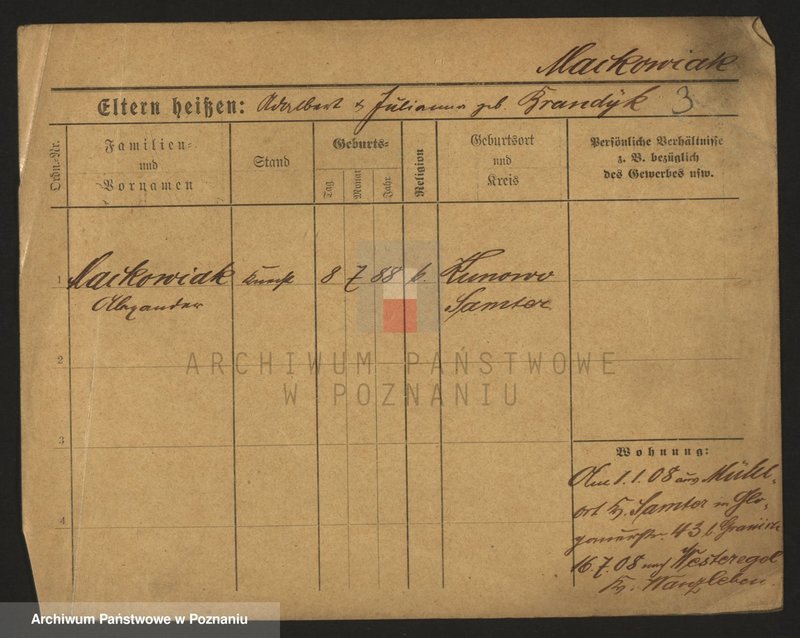 Maćkowiak
Eltern heißen: Adalbert & Julianna geb. Brandyk 3
Ordn.-Nr.
Familien-
und
Vornamen
Stand
Geburts-
Tag
Monat
Jahr
Religion
Geburtsort
und
Kreis
Persönliche Verhältnisse
z. B. bezüglich
des Gewerbes usw.
1 Maćkowiak Knecht 8 7 88 k. Kunowo
Alexander Samter
2
3
4
ARCHIWUM PAŃSTWOWE
W POZNANIU
Wohnung:
Am 1.1.08 aus Mühl-
ort Kr. Samter n. Glo-
gauerstr. 43 b.
16.7.08 nach Westeregel
Kr. Wanzleben.
Archiwum Państwowe w Poznaniu